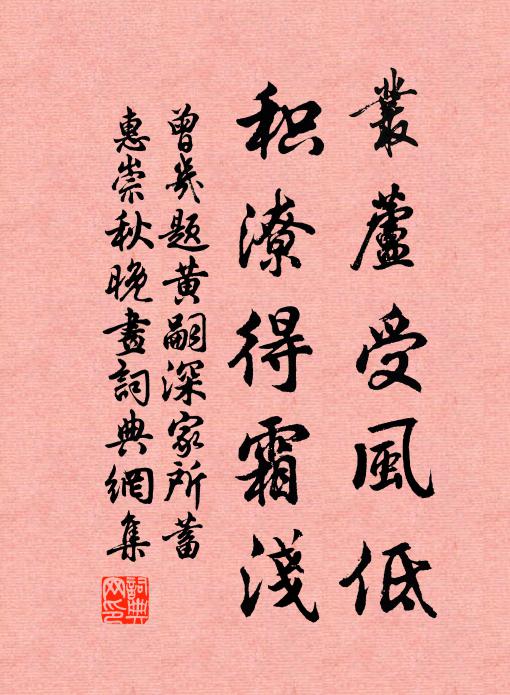 叢蘆受風低
积潦得霜淺
曾幾題黄嗣深家所蓄
惠崇秋晚畫詞典網集